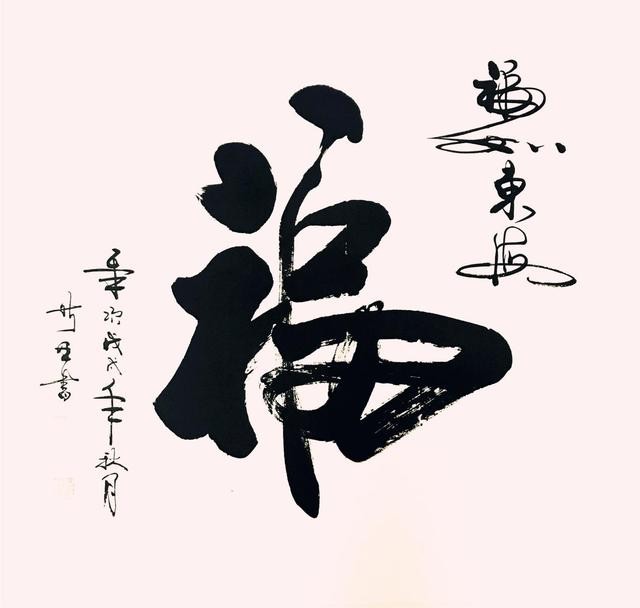 福如东海
福
年次戊戌年秋月
书